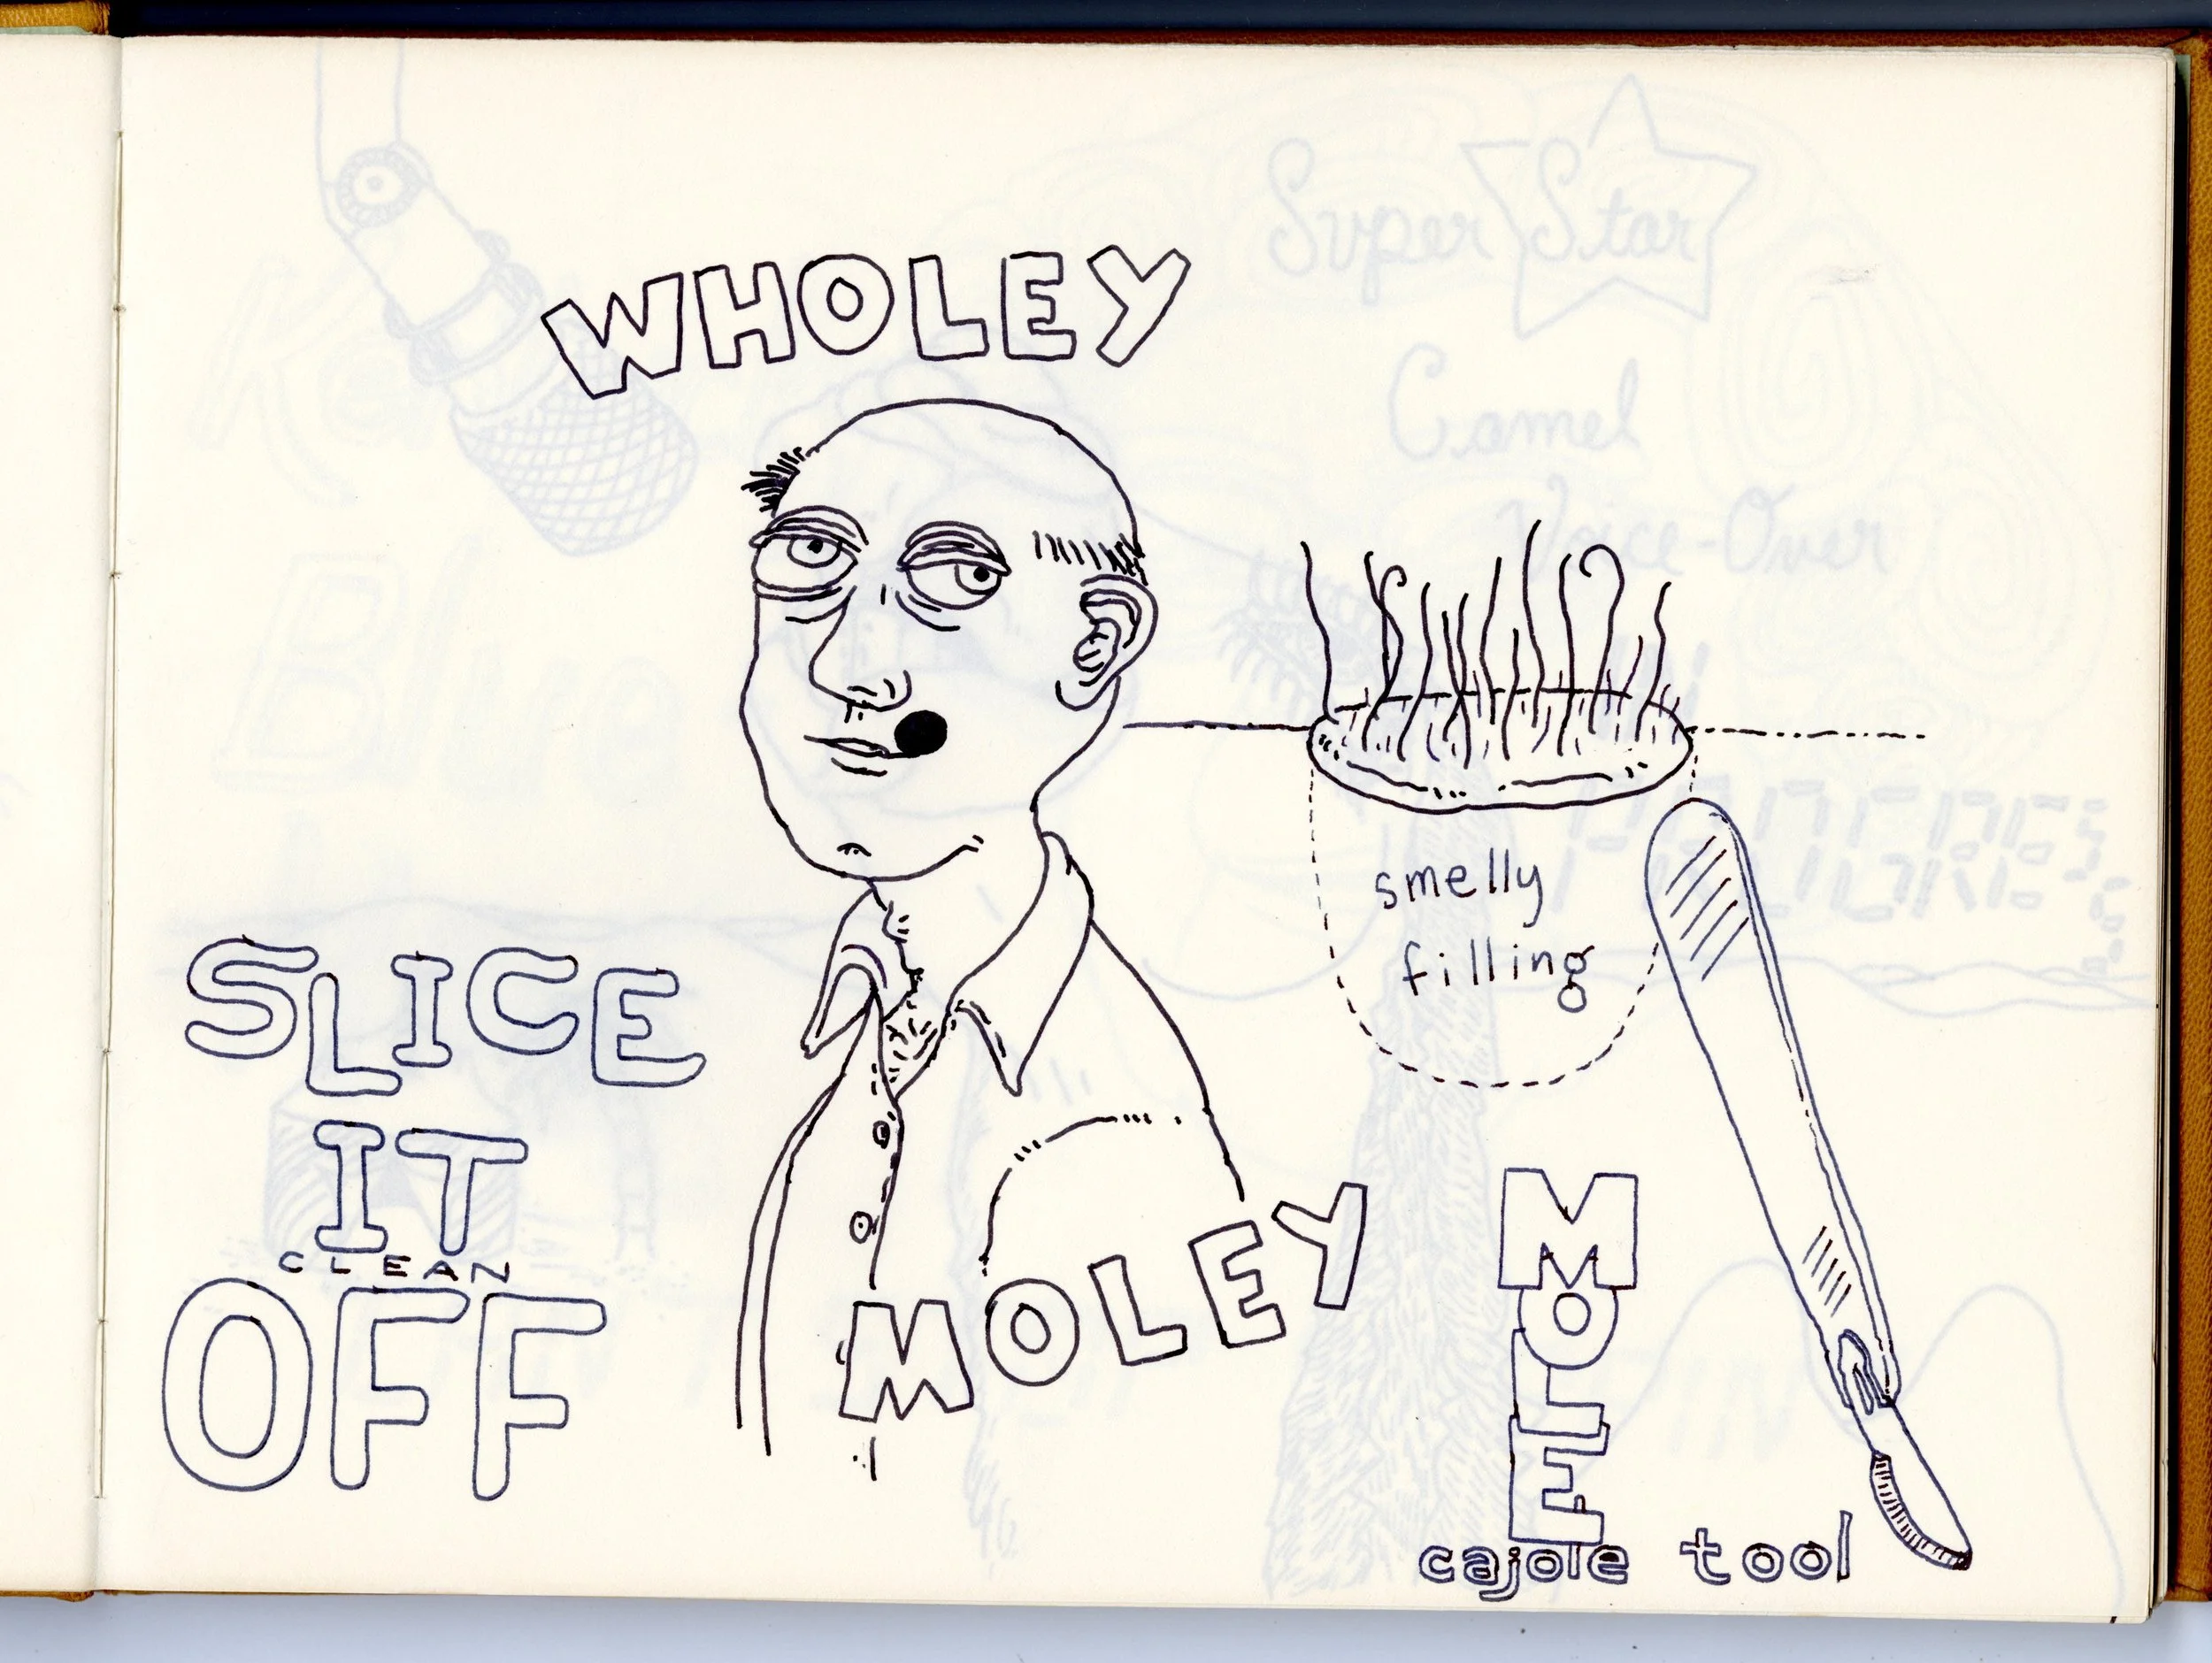 WHOLEY
Super Star
Camel
Voice-Over
smelly
filling
SLICE
IT
CLEAN
OFF
MOLEY
MOLE
cajole tool